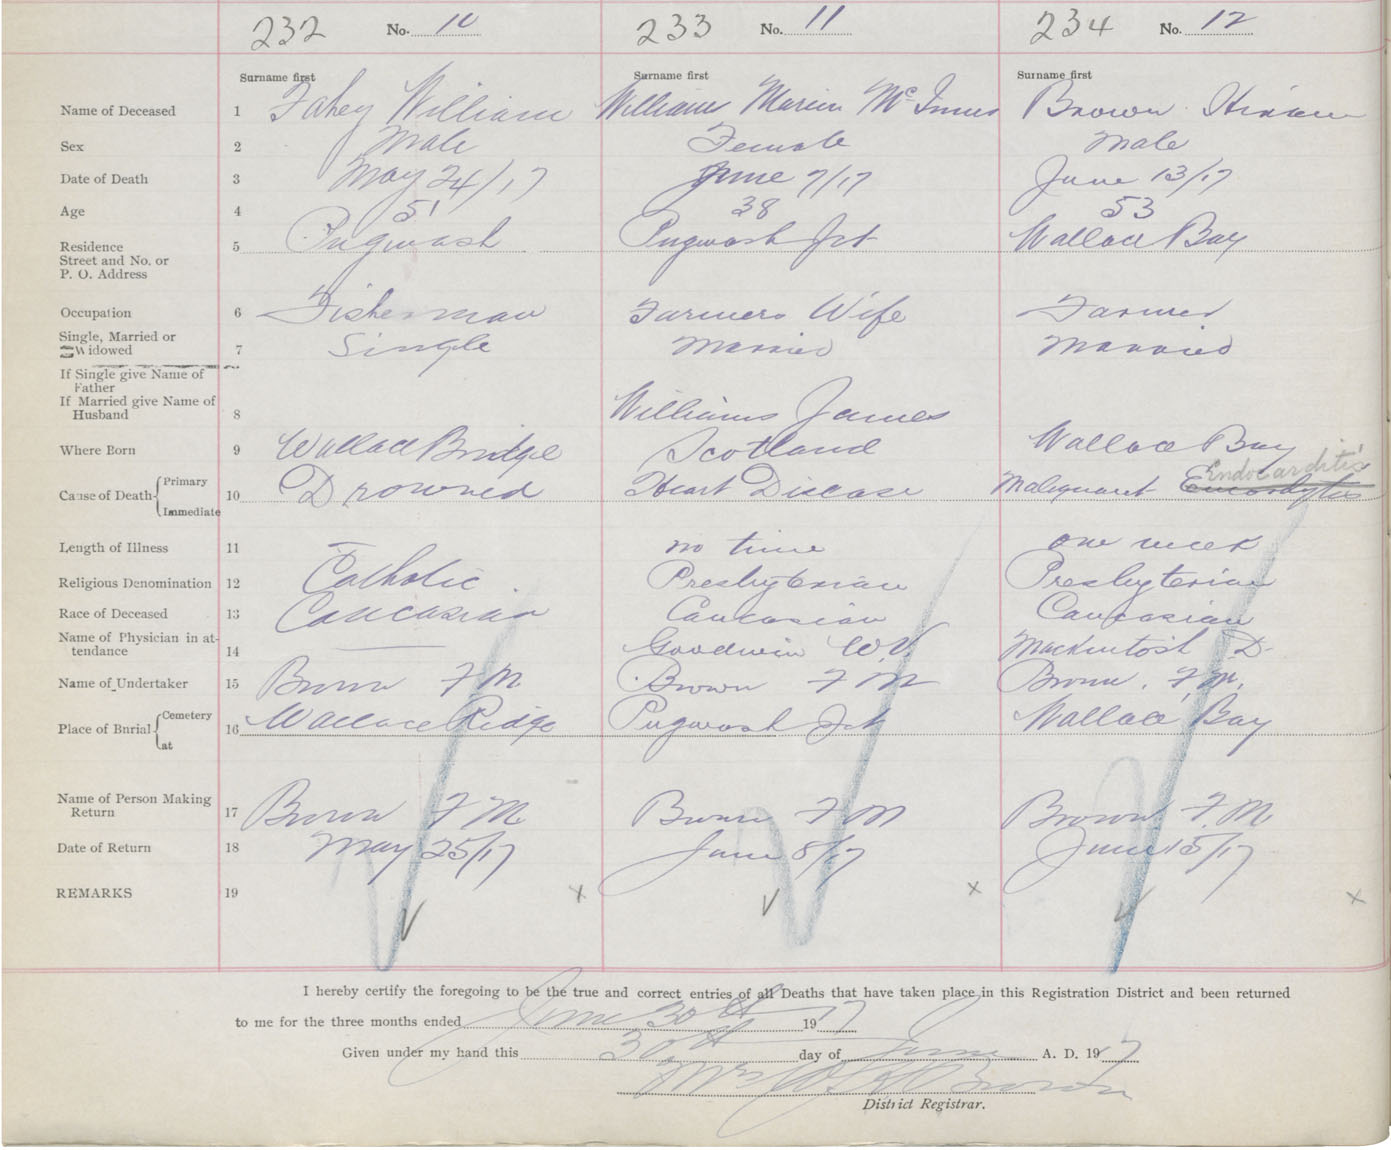 232 No. 10 233 No. 11 234 No. 12
Surname first Surname first Surname first
Name of Deceased 1 Fahey William Williams Marion McInnes Brown Hiram
Sex 2 Male Female Male
Date of Death 3 May 24/17 June 7/17 June 13/17
Age 4 51 38 53
Residence 5 Pugwash Pugwash Jct Wallace Bay
Street and No. or
P. O. Address
Occupation 6 Fisherman Farmers Wife Farmer
Single, Married or
Widowed 7 Single Married Married
If Single give Name of
Father
If Married give Name of
Husband 8 Williams James
Where Born 9 Wallace Bridge Scotland Wallace Bay
Endocarditis
Cause of Death Primary 10 Drowned Heart Disease Malequnant
Immediate
Length of Illness 11 — no time one week
Religious Denomination 12 Catholic Presbyterian Presbyterian
Race of Deceased 13 Caucasian Caucasian Caucasian
Name of Physician in at-
tendance 14 — Goodwin W.V. Mackintosh D.
Name of Undertaker 15 Brown F M Brown F M Brown F. M.
Place of Burial Cemetery 16 Wallace Ridge Pugwash Jct Wallace Bay
at
Name of Person Making
Return 17 Brown F M Brown F M Brown F. M
Date of Return 18 May 25/17 June 8/17 June 15/17
REMARKS 19 x x x
I hereby certify the foregoing to be the true and correct entries of all Deaths that have taken place in this Registration District and been returned
to me for the three months ended June 30th 1917
Given under my hand this 30th day of June A. D. 1917
Mrs Brown
District Registrar.